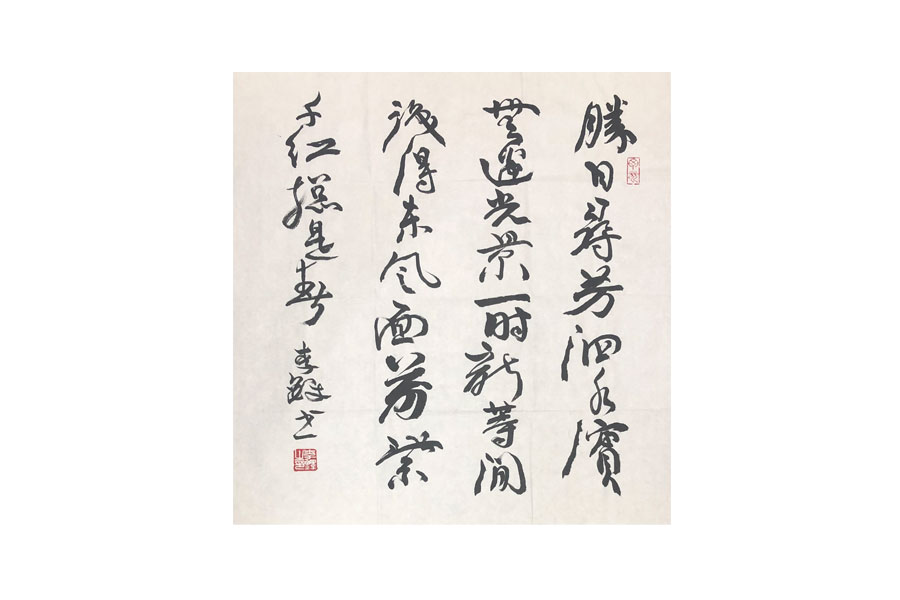 勝日尋芳泗水濱
無邊光景一时新等閒
識得东风面萬紫
千紅總是春 李